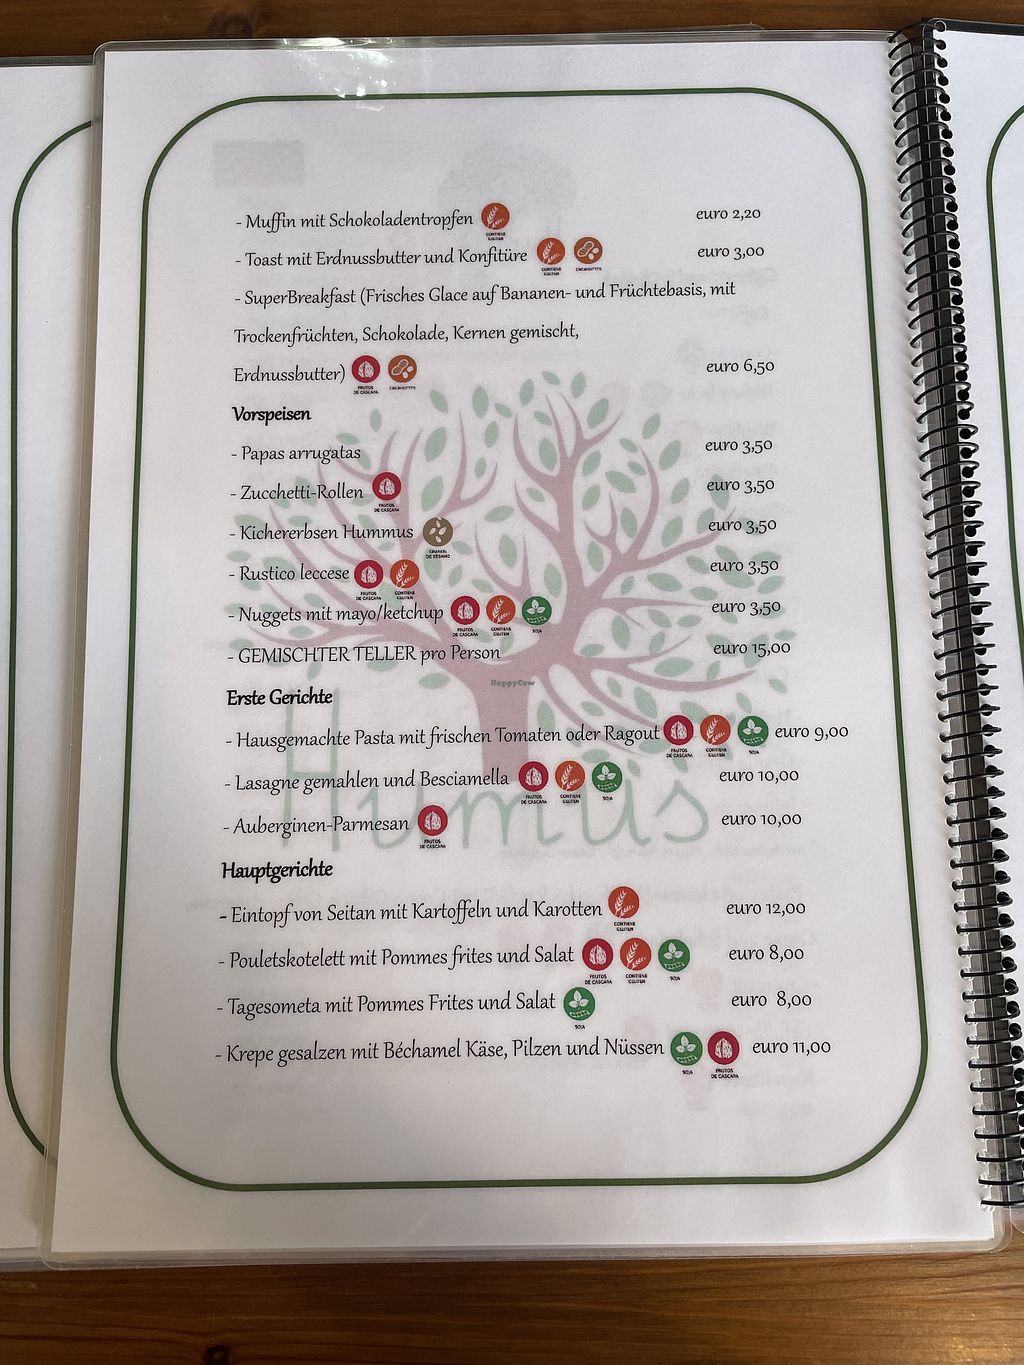 - Muffin mit Schokoladentropfen CONTIENE GLUTEN euro 2,20
- Toast mit Erdnussbutter und Konfitüre CONTIENE GLUTEN CACAHUETES euro 3,00
- SuperBreakfast (Frisches Glace auf Bananen- und Früchtebasis, mit
Trockenfrüchten, Schokolade, Kernen gemischt,
Erdnussbutter) FRUTOS DE CASCARA CACAHUETES euro 6,50
Vorspeisen
- Papas arrugatas euro 3,50
- Zucchetti-Rollen FRUTOS DE CASCARA euro 3,50
- Kichererbsen Hummus GRANOS DE SÉSAMO euro 3,50
- Rustico leccese FRUTOS DE CASCARA CONTIENE GLUTEN euro 3,50
- Nuggets mit mayo/ketchup FRUTOS DE CASCARA CONTIENE GLUTEN SOJA euro 3,50
- GEMISCHTER TELLER pro Person euro 15,00
HappyCow
Erste Gerichte
- Hausgemachte Pasta mit frischen Tomaten oder Ragout FRUTOS DE CASCARA CONTIENE GLUTEN SOJA euro 9,00
- Lasagne gemahlen und Besciamella FRUTOS DE CASCARA CONTIENE GLUTEN SOJA euro 10,00
- Auberginen-Parmesan FRUTOS DE CASCARA euro 10,00
Humus
Hauptgerichte
- Eintopf von Seitan mit Kartoffeln und Karotten CONTIENE GLUTEN euro 12,00
- Pouletskotelett mit Pommes frites und Salat FRUTOS DE CASCARA CONTIENE GLUTEN SOJA euro 8,00
- Tagesometa mit Pommes Frites und Salat SOJA euro 8,00
- Krepe gesalzen mit Béchamel Käse, Pilzen und Nüssen SOJA FRUTOS DE CASCARA euro 11,00